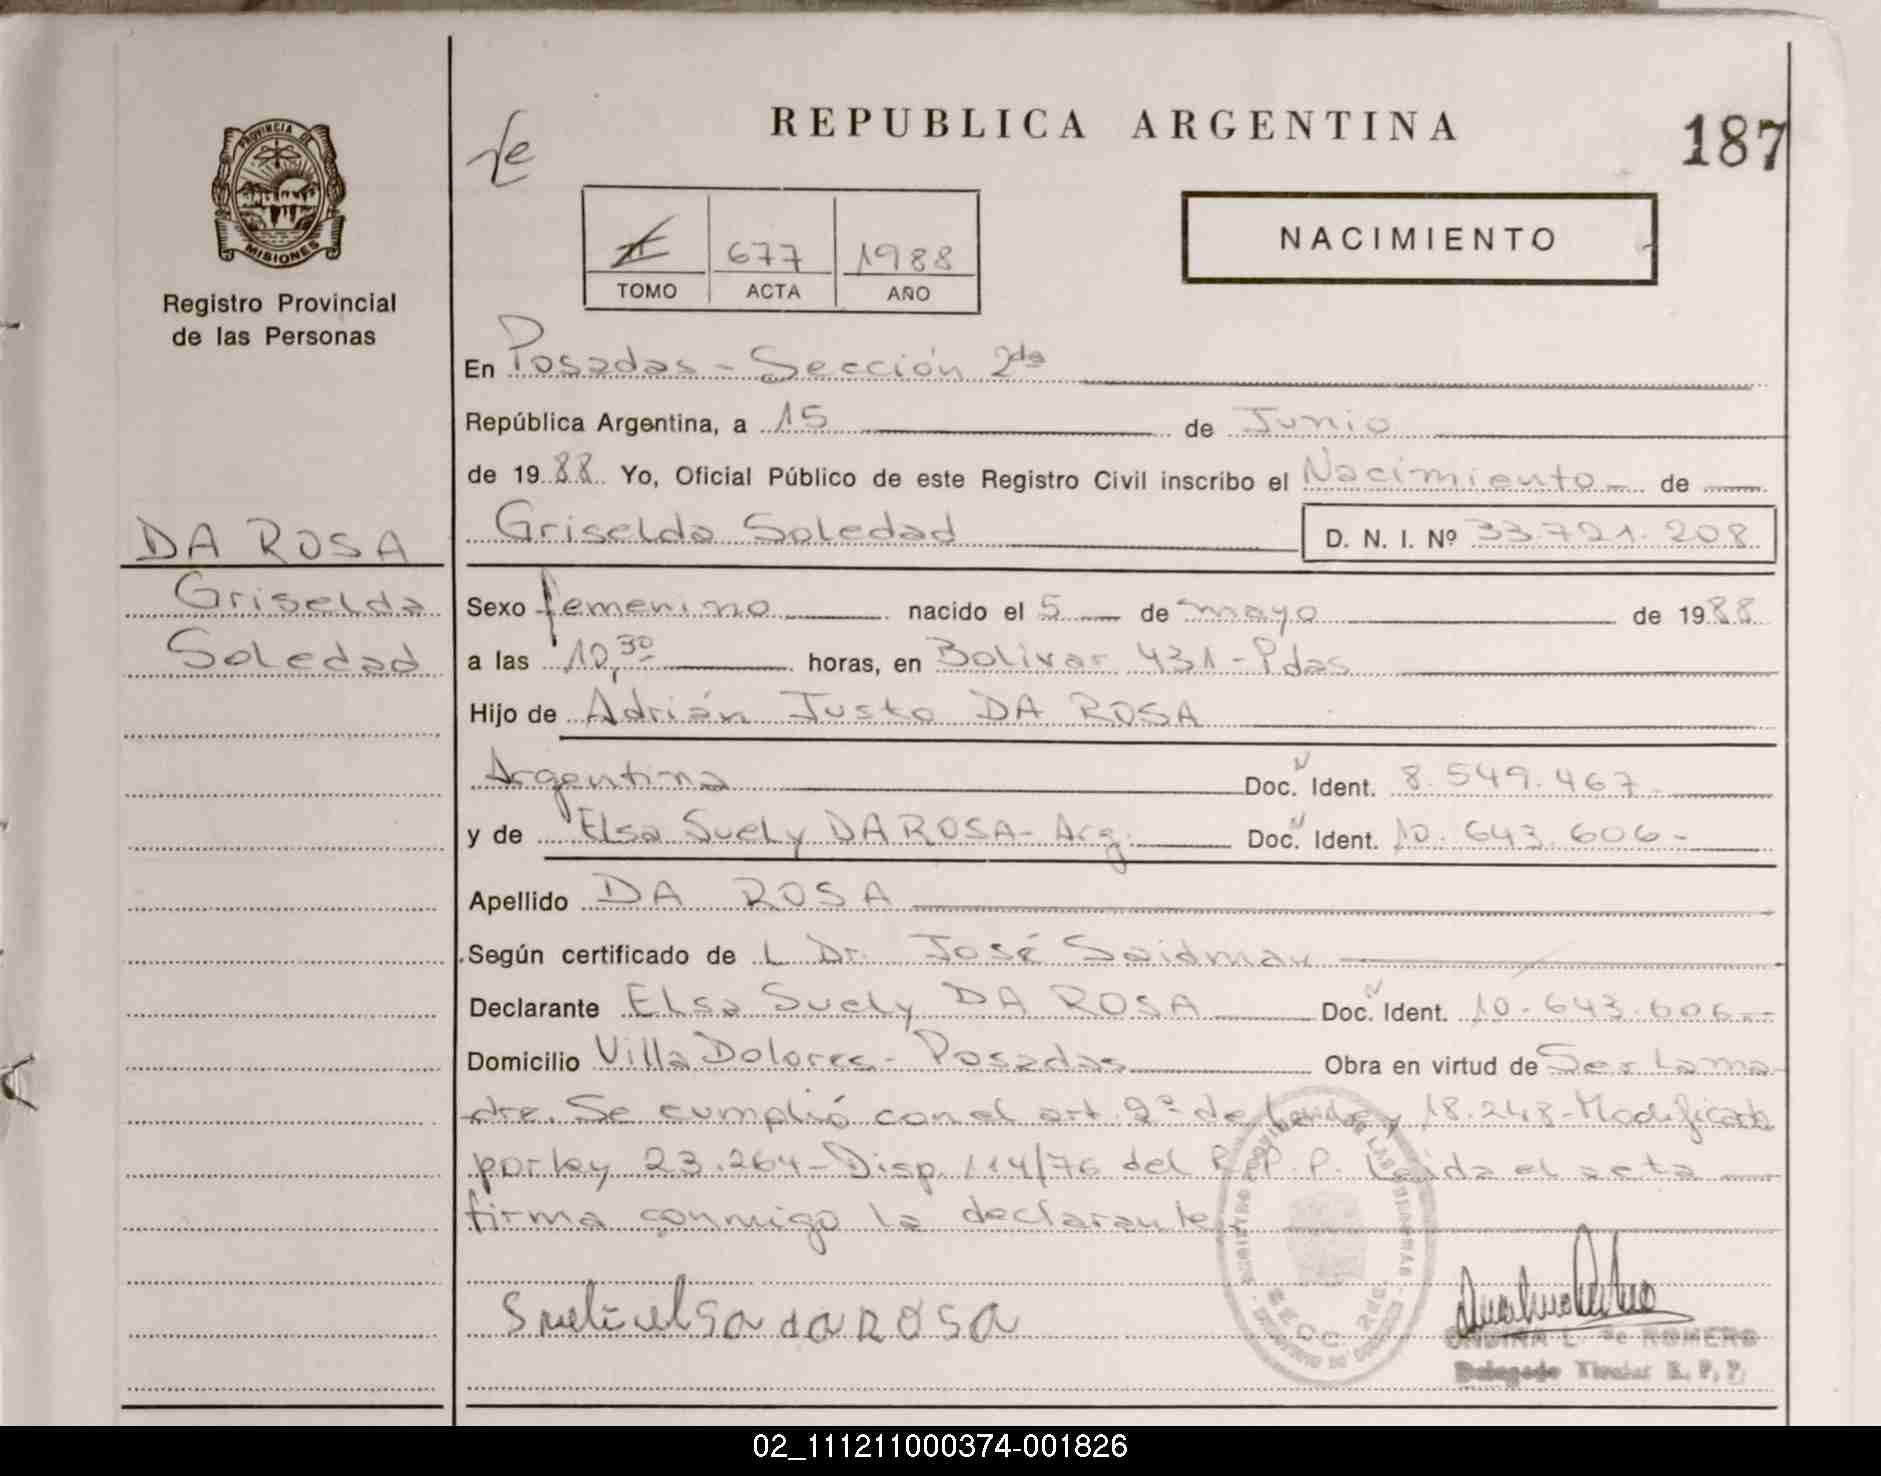 REPUBLICA ARGENTINA
187
PROVINCIA DE
MISIONES
Registro Provincial
de las Personas
677
1988
TOMO
ACTA
AÑO
NACIMIENTO
En Posadas - Sección 2da
República Argentina, a 15 de Junio
de 1988 Yo, Oficial Público de este Registro Civil inscribo el Nacimiento - de
DA ROSA
Griselda Soledad
D. N. I. Nº 33.721.208
Griselda
Soledad
Sexo femenino nacido el 5 de mayo de 1988
a las 10,30 horas, en Bolivar 431 - Pdas
Hijo de Adrián Justo DA ROSA
Argentina Doc. Ident. 8.549.467
y de Elsa Suely DA ROSA - Arg. Doc. Ident. 10.643.606 -
Apellido DA ROSA
Según certificado de L Dr. José Saidman
Declarante Elsa Suely DA ROSA Doc. Ident. 10.643.606 -
Domicilio Villa Dolores - Posadas Obra en virtud de Ser la ma
dre. Se cumplió con el art. 2º de la Ley 18.248 - Modificada
por ley 23.264 - Disp. 114/76 del R.P.P. Leída el acta
firma conmigo la declarante.
SECC. 2da.
da ROSA
ONDINA L. de ROMERO
Delegado Titular R. P. P.
02_111211000374-001826